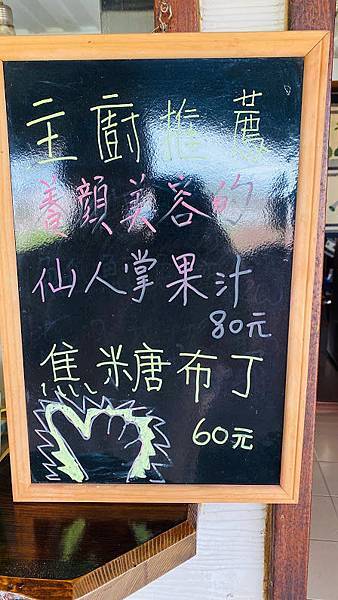 主廚推薦
養顏美容的
仙人掌果汁
80元
焦糖布丁
60元